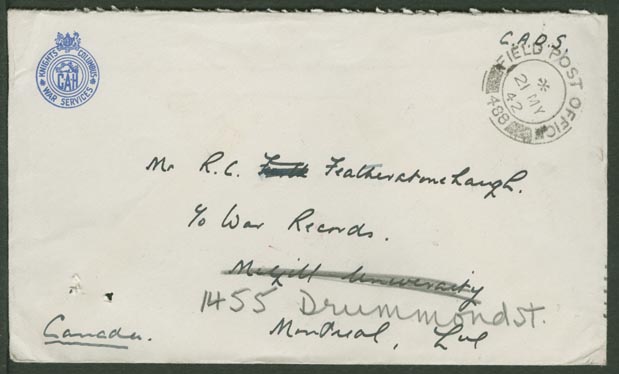 KNIGHTS COLUMBUS
CAH
WAR SERVICES
C.A.O.S.
FIELD POST OFFICE
*
21 MY
42
488
Mr R.C. Featherstonehaugh.
c/o War Records.
McGill University
1455 Drummond St.
Montreal, Que
Canada.